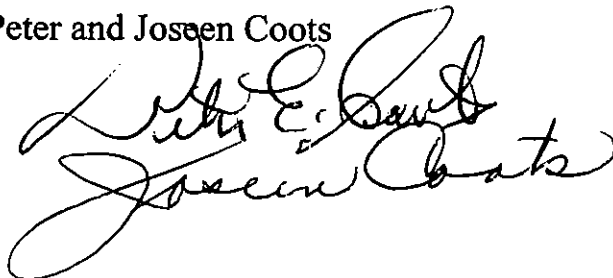 Peter and Joseen Coots
Peter E. Coots
Joseen Coots